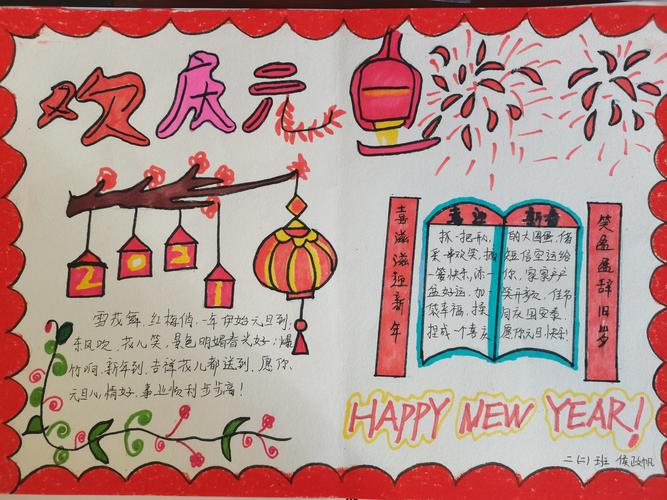 欢庆元旦
2021
雪花舞,红梅俏,一年伊始元旦到;
东风吹,花儿笑,景色明媚春光好;爆
竹响,新年到,吉祥花儿都送到,愿你
元旦心情好,事业顺利步步高!
喜滋滋迎新年
喜迎 新春
抓一把开心,
采一串欢笑,摘
一筐快乐,添一
盆好运,加一
袋幸福,揉
捏成一个喜庆
的大圆蛋,借
短信空运给
你,家家户户
笑开颜,佳节
同庆国安泰,
愿你元旦快乐!
笑盈盈辞旧岁
HAPPY NEW YEAR!
二(二)班